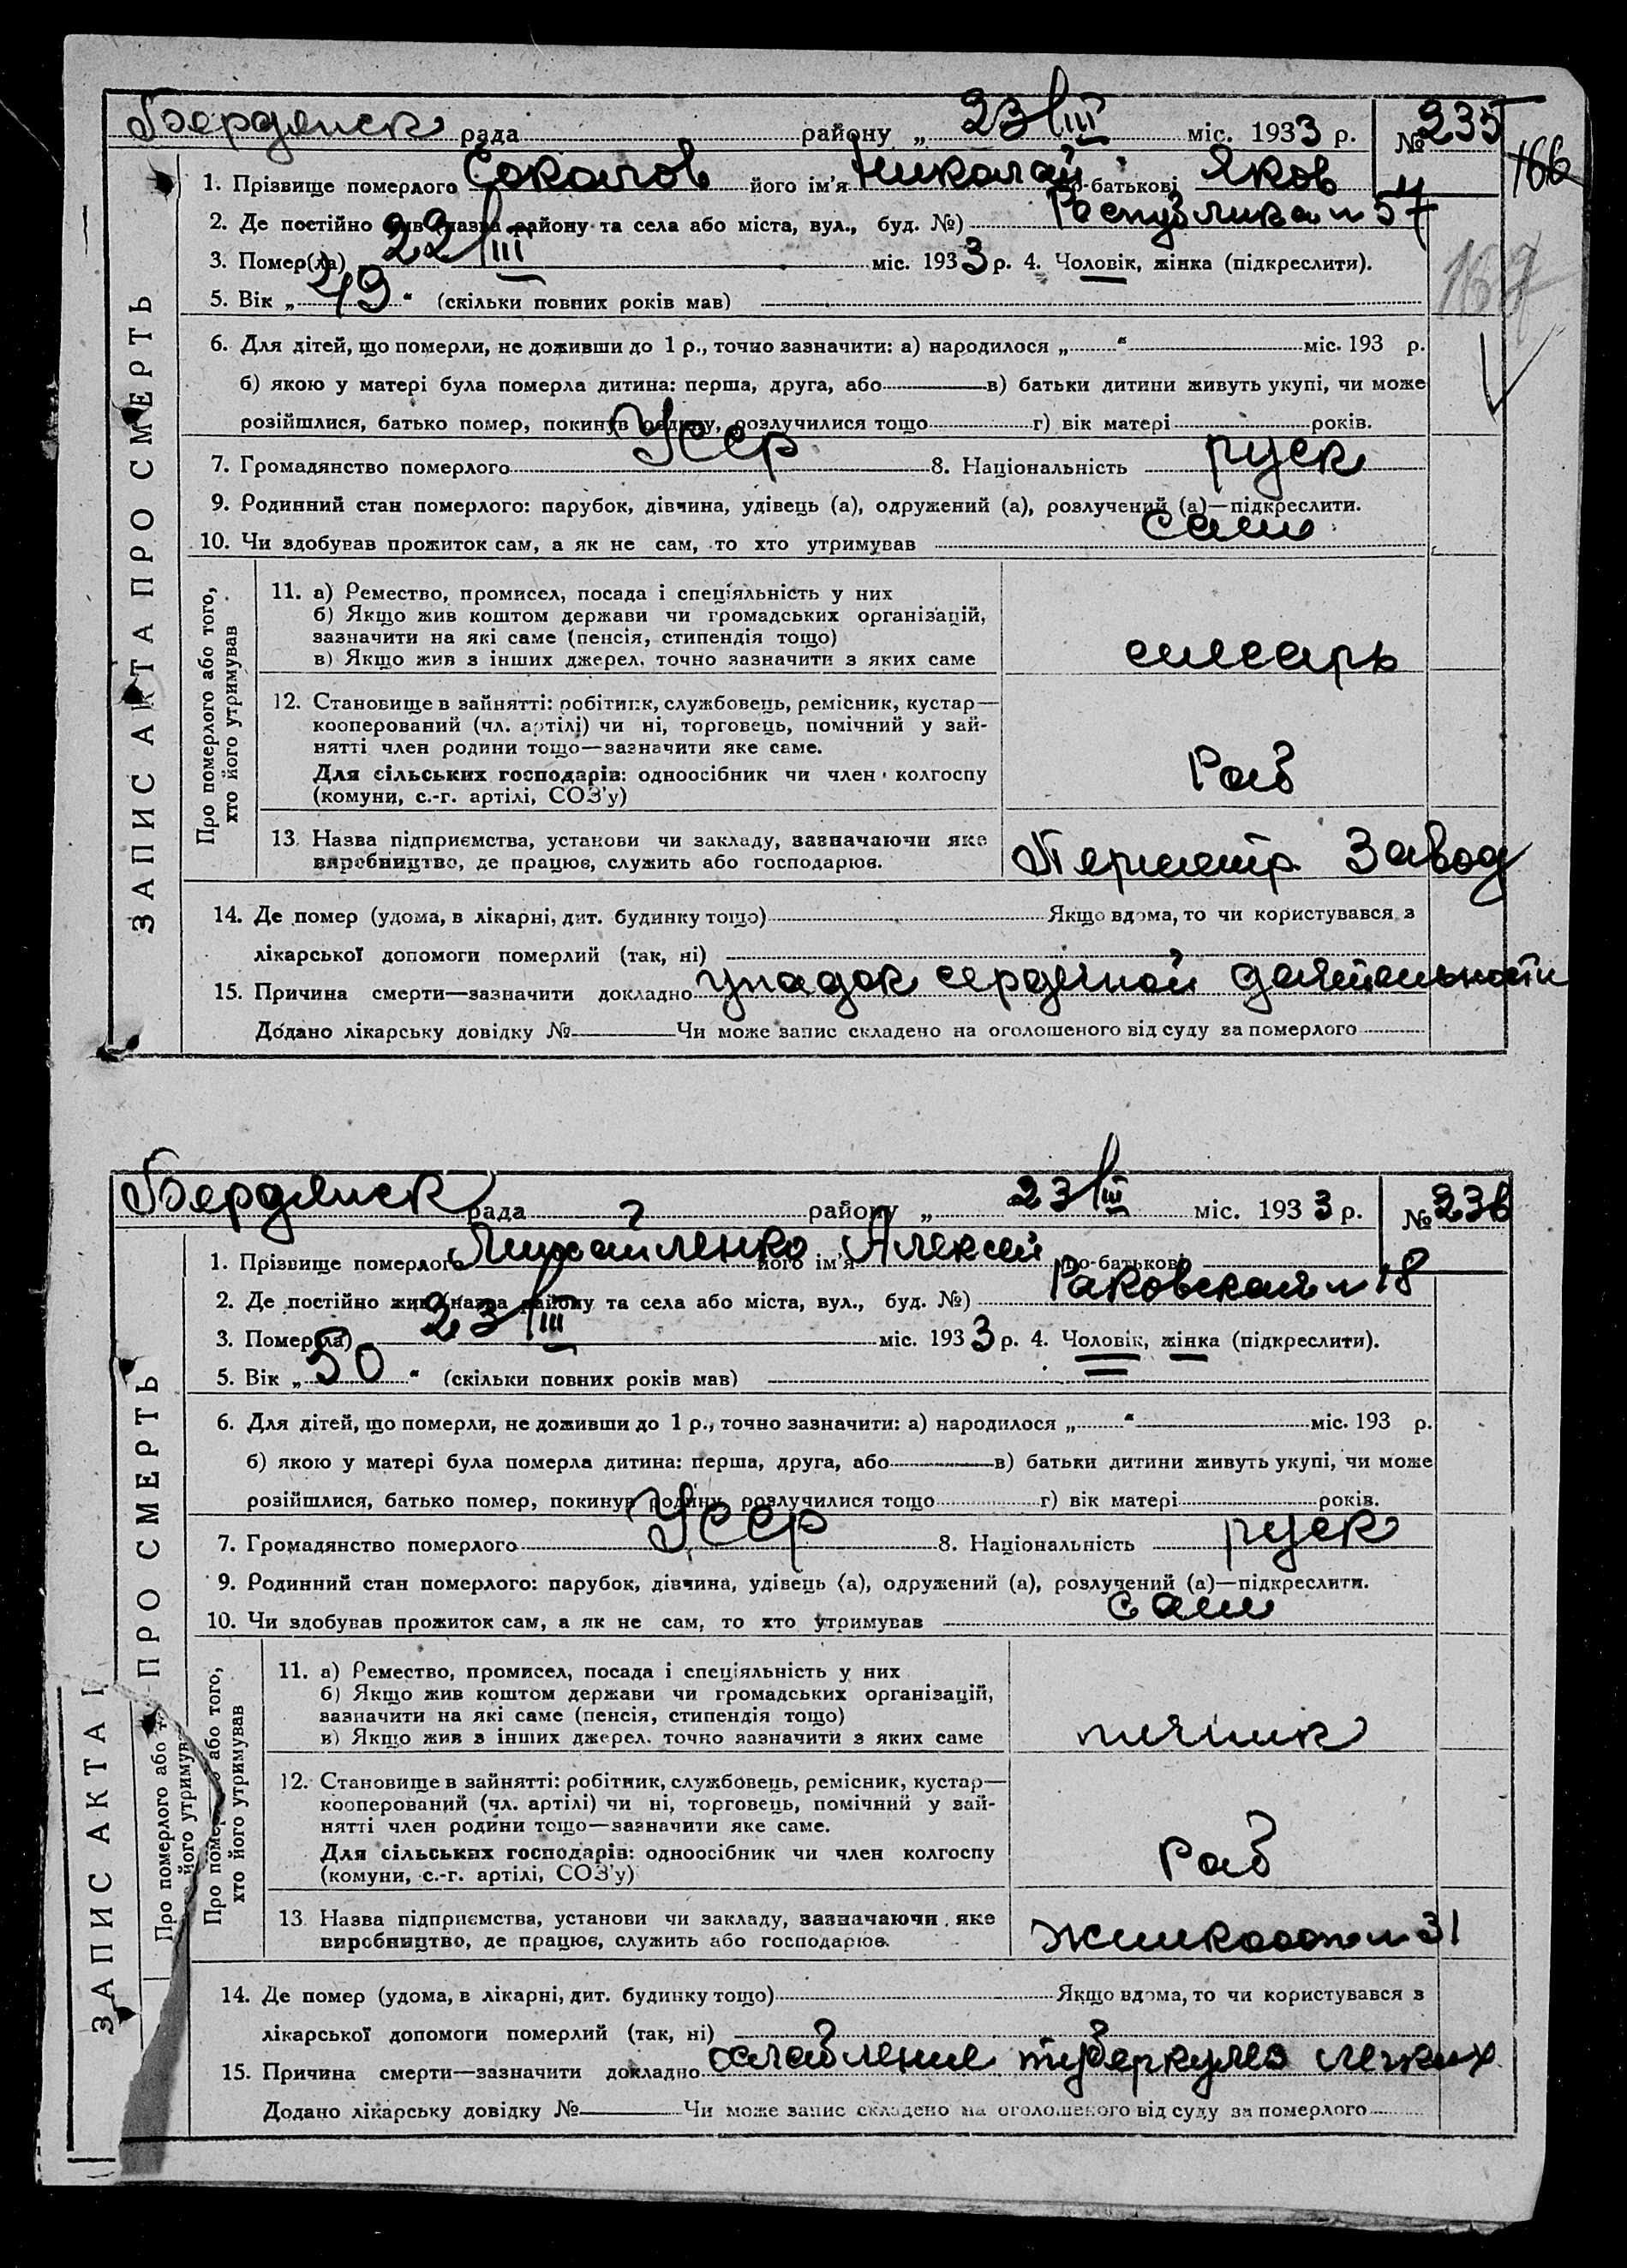 Бердянск рада району „ 23/III міс. 1933 р. № 235
166
1. Прізвище померлого Соколов його ім'я Николай по-батькові Яков
2. Де постійно жив (назва району та села або міста, вул., буд. №) Республика н 57
3. Помер(ла) 22/III міс. 1933 р. 4. Чоловік, жінка (підкреслити).
167
5. Вік „ 49 “ (скільки повних років мав)
6. Для дітей, що померли, не доживши до 1 р., точно зазначити: а) народилося „ “ міс. 193 р.
б) якою у матері була померла дитина: перша, друга, або в) батьки дитини живуть укупі, чи може
розійшлися, батько помер, покинув родину, розлучилися тощо г) вік матері років.
7. Громадянство померлого Усср 8. Національність руск
9. Родинний стан померлого: парубок, дівчина, удівець (а), одружений (а), розлучений (а)—підкреслити.
10. Чи здобував прожиток сам, а як не сам, то хто утримував сам
ЗАПИС АКТА ПРО СМЕРТЬ
Про померлого або того, хто його утримував
11. а) Ремество, промисел, посада і спеціяльність у них
б) Якщо жив коштом держави чи громадських організацій,
зазначити на які саме (пенсія, стипендія тощо)
в) Якщо жив з інших джерел, точно зазначити з яких саме
слесарь
12. Становище в зайнятті: робітник, службовець, ремісник, кустар—
кооперований (чл. артілі) чи ні, торговець, помічний у зай-
нятті член родини тощо—зазначити яке саме.
Для сільських господарів: одноосібник чи член колгоспу
(комуни, с.-г. артілі, СОЗ'у)
Раб
13. Назва підприємства, установи чи закладу, зазначаючи яке
виробництво, де працює, служить або господарює.
Завод
14. Де помер (удома, в лікарні, дит. будинку тощо) Якщо вдома, то чи користувався з
лікарської допомоги померлий (так, ні)
15. Причина смерти—зазначити докладно упадок сердечной деятельности
Додано лікарську довідку № Чи може запис складено на оголошеного від суду за померлого
Бердянск рада району „ 23/III міс. 1933 р. № 236
1. Прізвище померлого Михайленко його ім'я Алексей по-батькові
2. Де постійно жив (назва району та села або міста, вул., буд. №) Раковская н 18
3. Помер(ла) 23/III міс. 1933 р. 4. Чоловік, жінка (підкреслити).
5. Вік „ 50 “ (скільки повних років мав)
6. Для дітей, що померли, не доживши до 1 р., точно зазначити: а) народилося „ “ міс. 193 р.
б) якою у матері була померла дитина: перша, друга, або в) батьки дитини живуть укупі, чи може
розійшлися, батько помер, покинув родину, розлучилися тощо г) вік матері років.
7. Громадянство померлого Усср 8. Національність руск
9. Родинний стан померлого: парубок, дівчина, удівець (а), одружений (а), розлучений (а)—підкреслити.
10. Чи здобував прожиток сам, а як не сам, то хто утримував сам
ПРО СМЕРТЬ
ЗАПИС АКТА
Про померлого або
його утримув
Про помер або того,
хто його утримував
11. а) Ремество, промисел, посада і спеціяльність у них
б) Якщо жив коштом держави чи громадських організацій,
зазначити на які саме (пенсія, стипендія тощо)
в) Якщо жив з інших джерел, точно зазначити з яких саме
печник
12. Становище в зайнятті: робітник, службовець, ремісник, кустар—
кооперований (чл. артілі) чи ні, торговець, помічний у зай-
нятті член родини тощо—зазначити яке саме.
Для сільських господарів: одноосібник чи член колгоспу
(комуни, с.-г. артілі, СОЗ'у)
Раб
13. Назва підприємства, установи чи закладу, зазначаючи яке
виробництво, де працює, служить або господарює.
Жилкооп н 31
14. Де помер (удома, в лікарні, дит. будинку тощо) Якщо вдома, то чи користувався з
лікарської допомоги померлий (так, ні)
15. Причина смерти—зазначити докладно ослабление туберкулез легких
Додано лікарську довідку № Чи може запис складено на оголошеного від суду за померлого